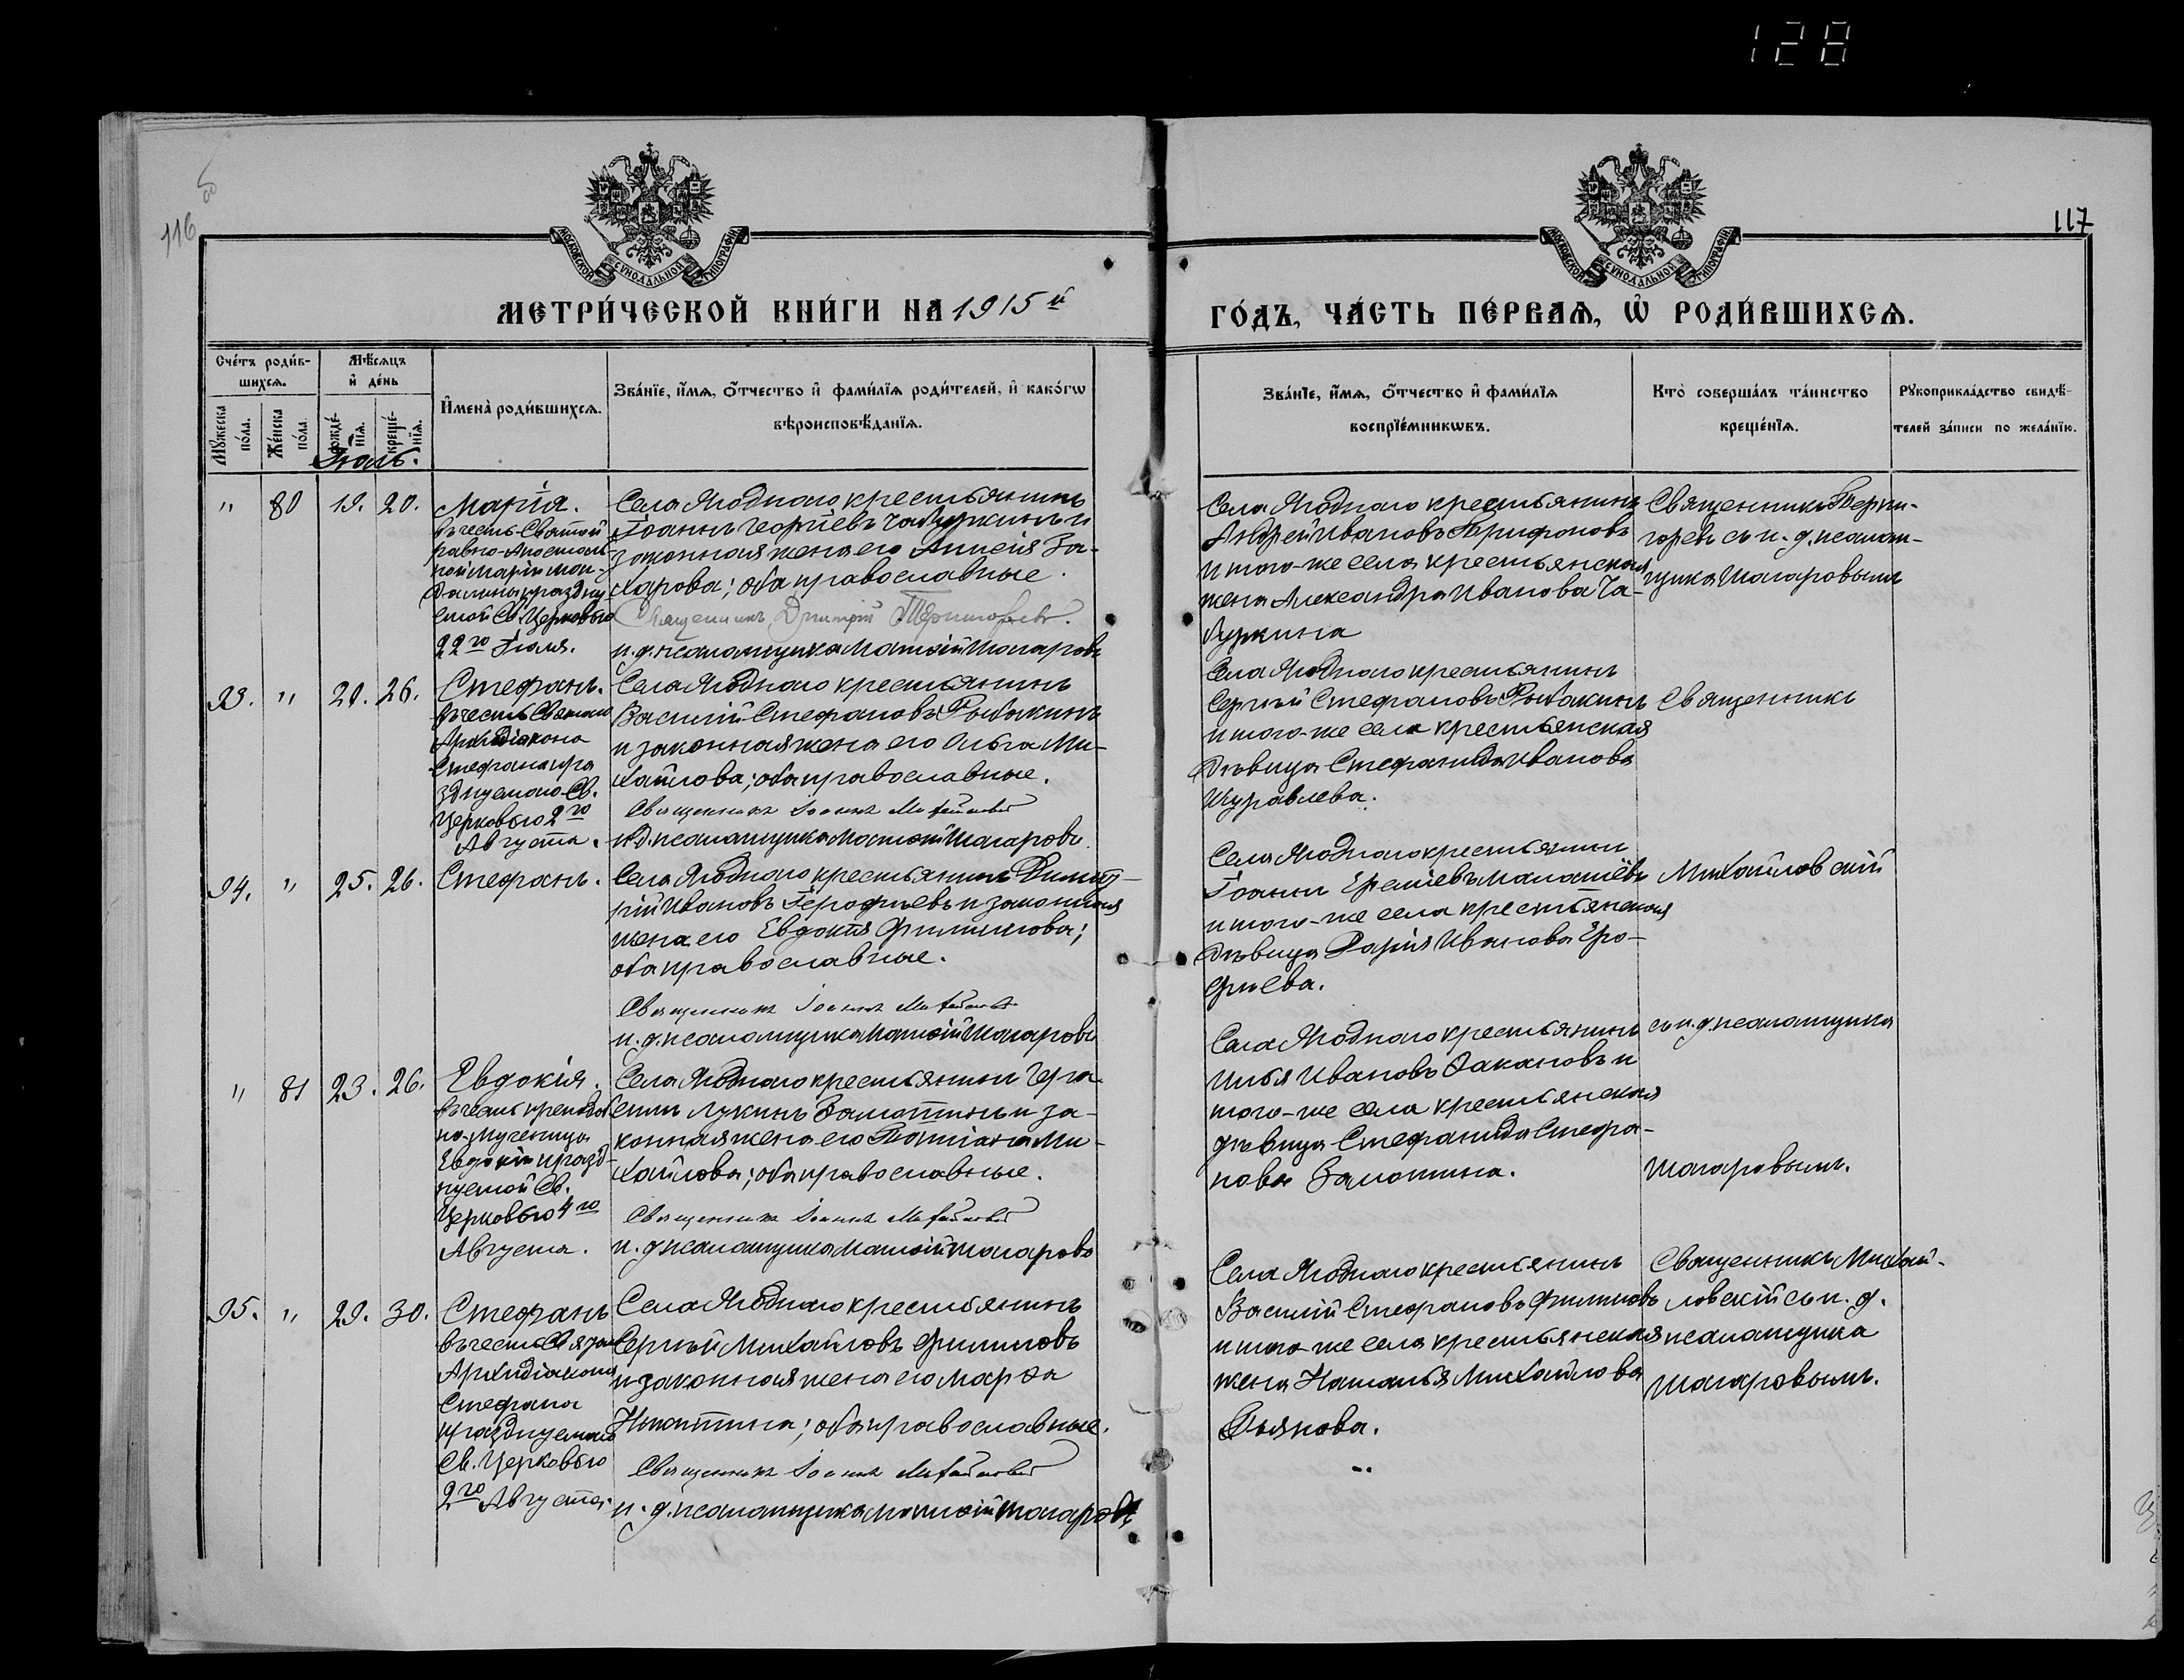 128
116
117
МОСКОВСКОЙ СѴНОДАЛЬНОЙ ТИПОГРАФІИ
МОСКОВСКОЙ СѴНОДАЛЬНОЙ ТИПОГРАФІИ
МЕТРИ́ЧЕСКОЙ КНИ́ГИ НА 1915 й
ГО́ДЪ, ЧА́СТЬ ПЕ́РВАѦ, Ѡ҆ РОДИ́ВШИХСѦ.
Сче́тъ роди́в-
шихсѧ.
Мѣ́сѧцъ
и҆ де́нь
Мꙋ́жеска по́ла.
Же́нска по́ла.
рожде́-нїѧ.
креще́-нїѧ.
И҆мена̀ роди́вшихсѧ.
Зва́нїе, и҆́мѧ, ѻ҆́тчество и҆ фами́лїѧ роди́телей, и҆ како́гѡ
вѣроисповѣ́данїѧ.
Зва́нїе, и҆́мѧ, ѻ҆́тчество и҆ фами́лїѧ
воспрїе́мникѡвъ.
Кто̀ соверша́лъ та́инство
креще́нїѧ.
Рꙋкоприкла́дство свидѣ́-
телей за́писи по жела́нїю.
Іюль.
" 80 19. 20.
Марія.
въ честь Святой
равно-Апостоль-
ной Маріи Маг-
далины праздну-
емой Св. Церковью
22го Іюля.
Села Ягоднаго крестьянинъ
Іоаннъ Георгіевъ Чабуркинъ и
законная жена его Анисія За-
харова; оба православные.
Священникъ Дмитрій Терниторевъ.
и. д. псаломщика Матѳій Макаровъ
Села Ягоднаго крестьянинъ
Андрей Ивановъ Трифоновъ
и того-же села крестьянская
жена Александра Иванова Ча-
буркина
Священникъ
съ и. д. псалом-
щика Макаровымъ
93. " 21. 26.
Стефанъ.
въ честь Святаго
Архидіакона
Стефана пра
зднуемаго Св.
Церковью 2го
Августа.
Села Ягоднаго крестьянинъ
Василій Стефановъ Рыбакинъ
и законная жена его Ольга Ми-
хайлова; оба православные.
Священникъ Іоаннъ Михайловскій
и. д. псаломщика Матѳій Макаровъ
Села Ягоднаго крестьянинъ
Сергѣй Стефановъ Рыбакинъ
и того-же села крестьянская
дѣвица Стефанида Иванова
Журавлева.
Священникъ
94. " 25. 26.
Стефанъ.
Села Ягоднаго крестьянинъ Димит-
рій Ивановъ Герофѣевъ и законная
жена его Евдокія Филиппова;
оба православные.
Священникъ Іоаннъ Михайловскій
и. д. псаломщика Матѳій Макаровъ
Села Ягоднаго крестьянинъ
Іоаннъ
и того-же села крестьянская
дѣвица Дарія Иванова Еро-
фѣева.
Михайловскій
" 81 23. 26.
Евдокія.
въ честь преподоб-
но-мученицы
Евдокіи празд-
нуемой Св.
Церковью 4го
Августа.
Села Ягоднаго крестьянинъ Гера-
симъ Лукинъ Замотинъ и за-
конная жена его Татіана Ми-
хайлова; оба православные.
Священникъ Іоаннъ Михайловскій
и. д. псаломщика Матѳій Макаровъ
Села Ягоднаго крестьянинъ
Илья Ивановъ и
того-же села крестьянская
дѣвица Стефанида Стефа-
нова Замотина.
съ и. д. псаломщика
Макаровымъ.
95. " 29. 30.
Стефанъ
въ честь Святаго
Архидіакона
Стефана
празднуемаго
Св. Церковью
2го Августа.
Села Ягоднаго крестьянинъ
Сергѣй Михайловъ Филиповъ
и законная жена его Марѳа
Никитина; оба православные.
Священникъ Іоаннъ Михайловскій
и. д. псаломщика Матѳій Макаровъ
Села Ягоднаго крестьянинъ
Василій Стефановъ Филиповъ
и того-же села крестьянская
жена Наталья Михайлова
Священникъ Михай-
ловскій съ и. д.
псаломщика
Макаровымъ.